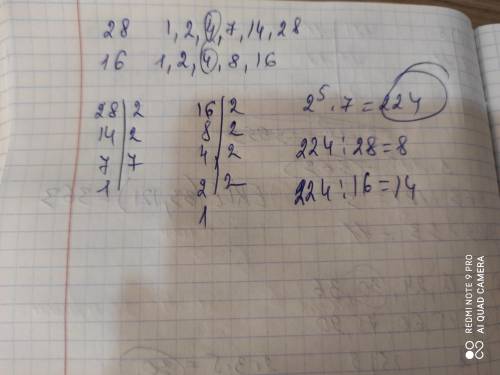 28 1, 2, 4, 7, 14, 28
16 1, 2, 4, 8, 16
28 | 2
14 | 2
7 | 7
1
16 | 2
8 | 2
4 | 2
2 | 2
1
2⁵ · 7 = 224
224 : 28 = 8
224 : 16 = 14
REDMI NOTE 9 PRO
AI QUAD CAMERA